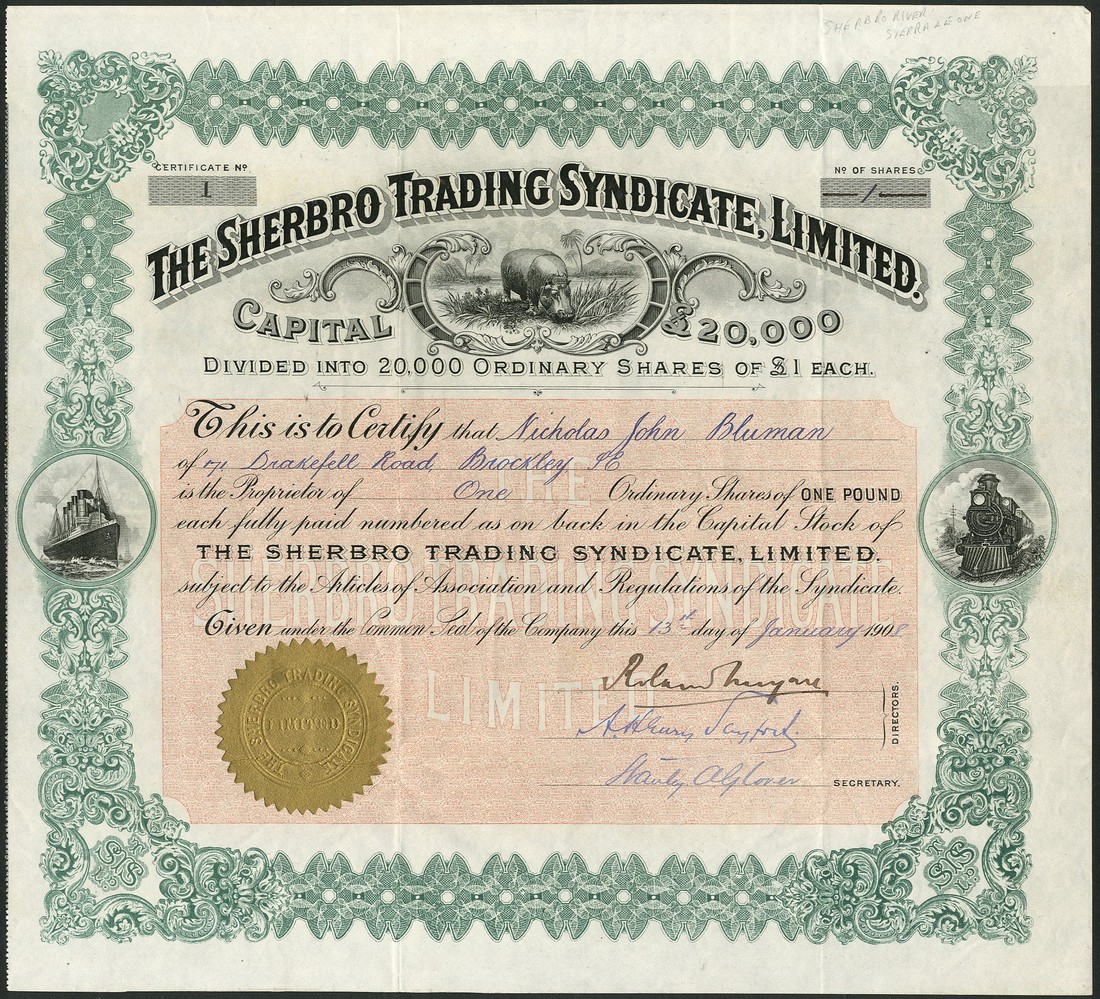 SHERBRO RIVER
SIERRA LEONE
CERTIFICATE Nº
1
Nº OF SHARES
1
THE SHERBRO TRADING SYNDICATE, LIMITED.
CAPITAL £20,000
DIVIDED INTO 20,000 ORDINARY SHARES OF £1 EACH.
This is to Certify that Nicholas John Bluman
of 71 Drakefell Road, Brockley SE
is the Proprietor of One Ordinary Shares of ONE POUND
each fully paid numbered as on back in the Capital Stock of
THE SHERBRO TRADING SYNDICATE, LIMITED.
subject to the Articles of Association and Regulations of the Syndicate.
Given under the Common Seal of the Company this 13th day of January 1908
THE
SHERBRO TRADING SYNDICATE
LIMITED
THE SHERBRO TRADING SYNDICATE
LIMITED
DIRECTORS.
Stanley Glover
SECRETARY.